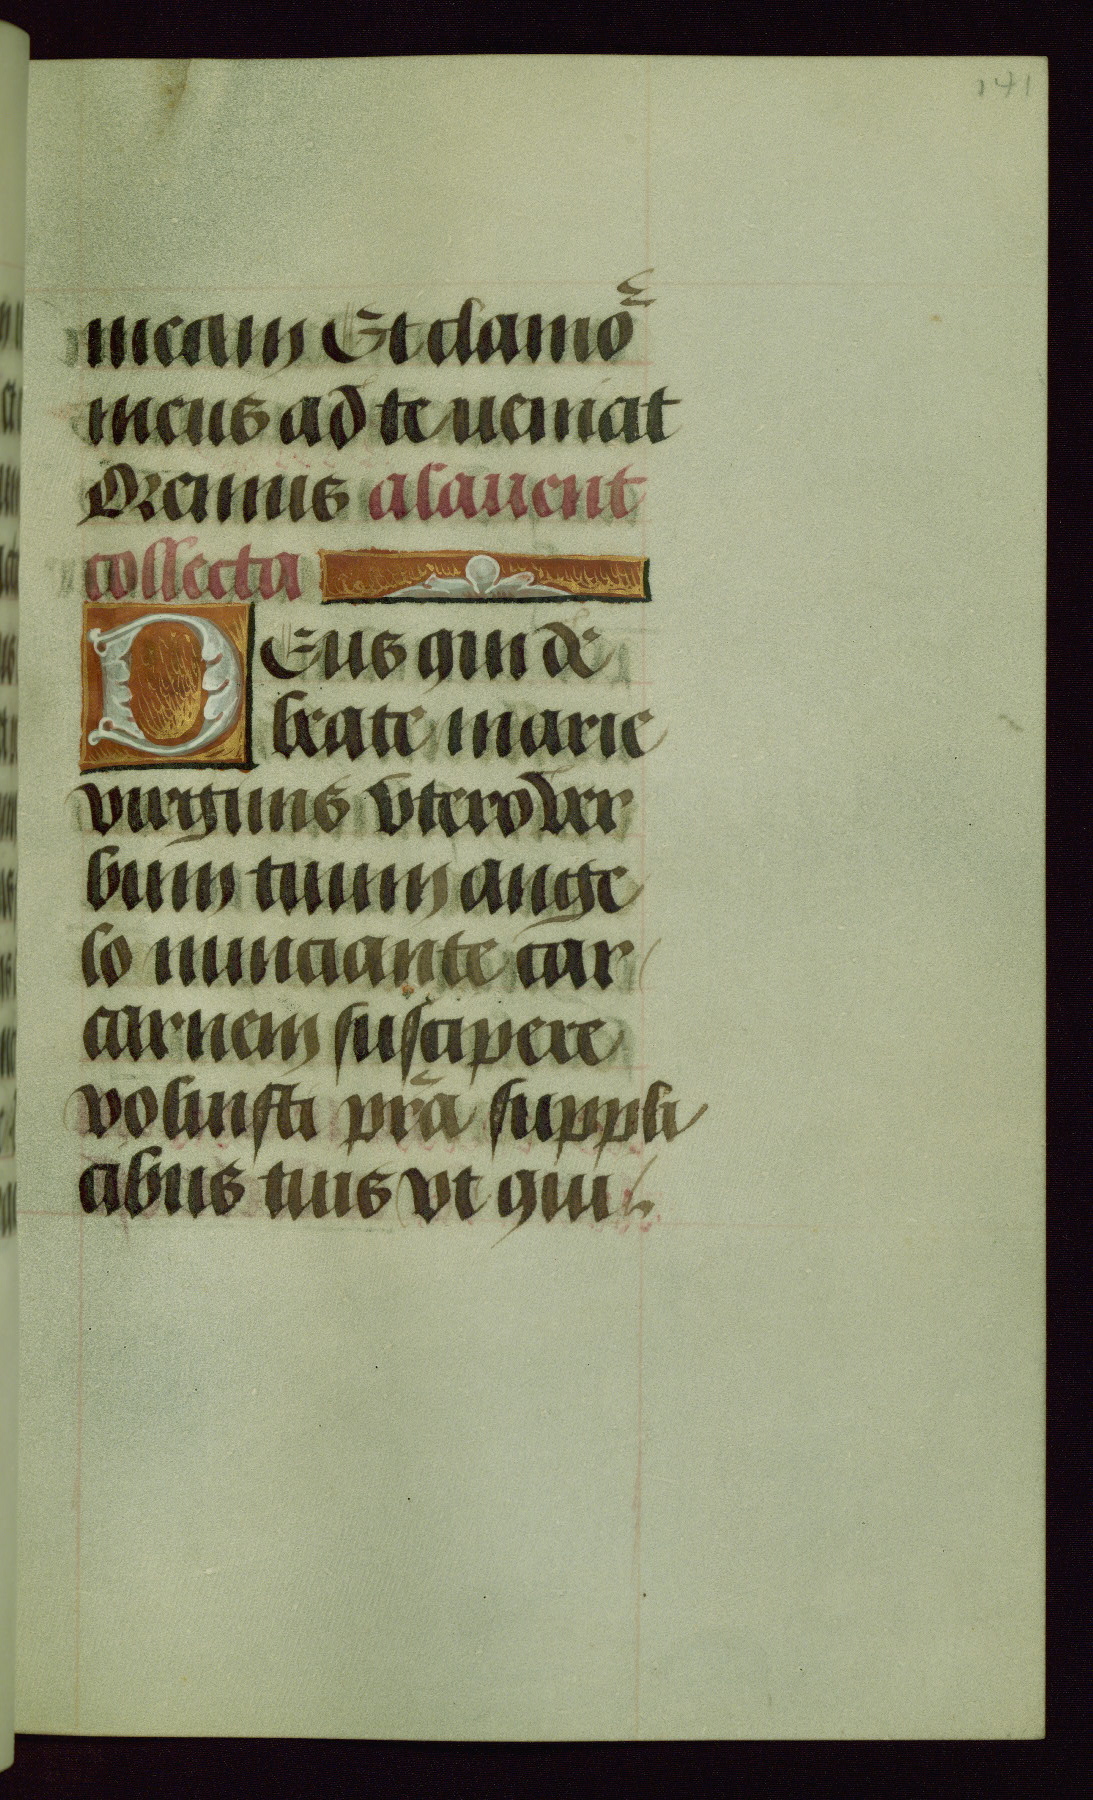 141
meam Et clamo᷑
meus ad te ueniat
Oremus alauent
collecta
DEus qui de
beate marie
virginis vtero ver
bum tuum ange
lo nunciante car
carnem suscipere
voluisti pr̄a suppli
cibus tuis vt qui